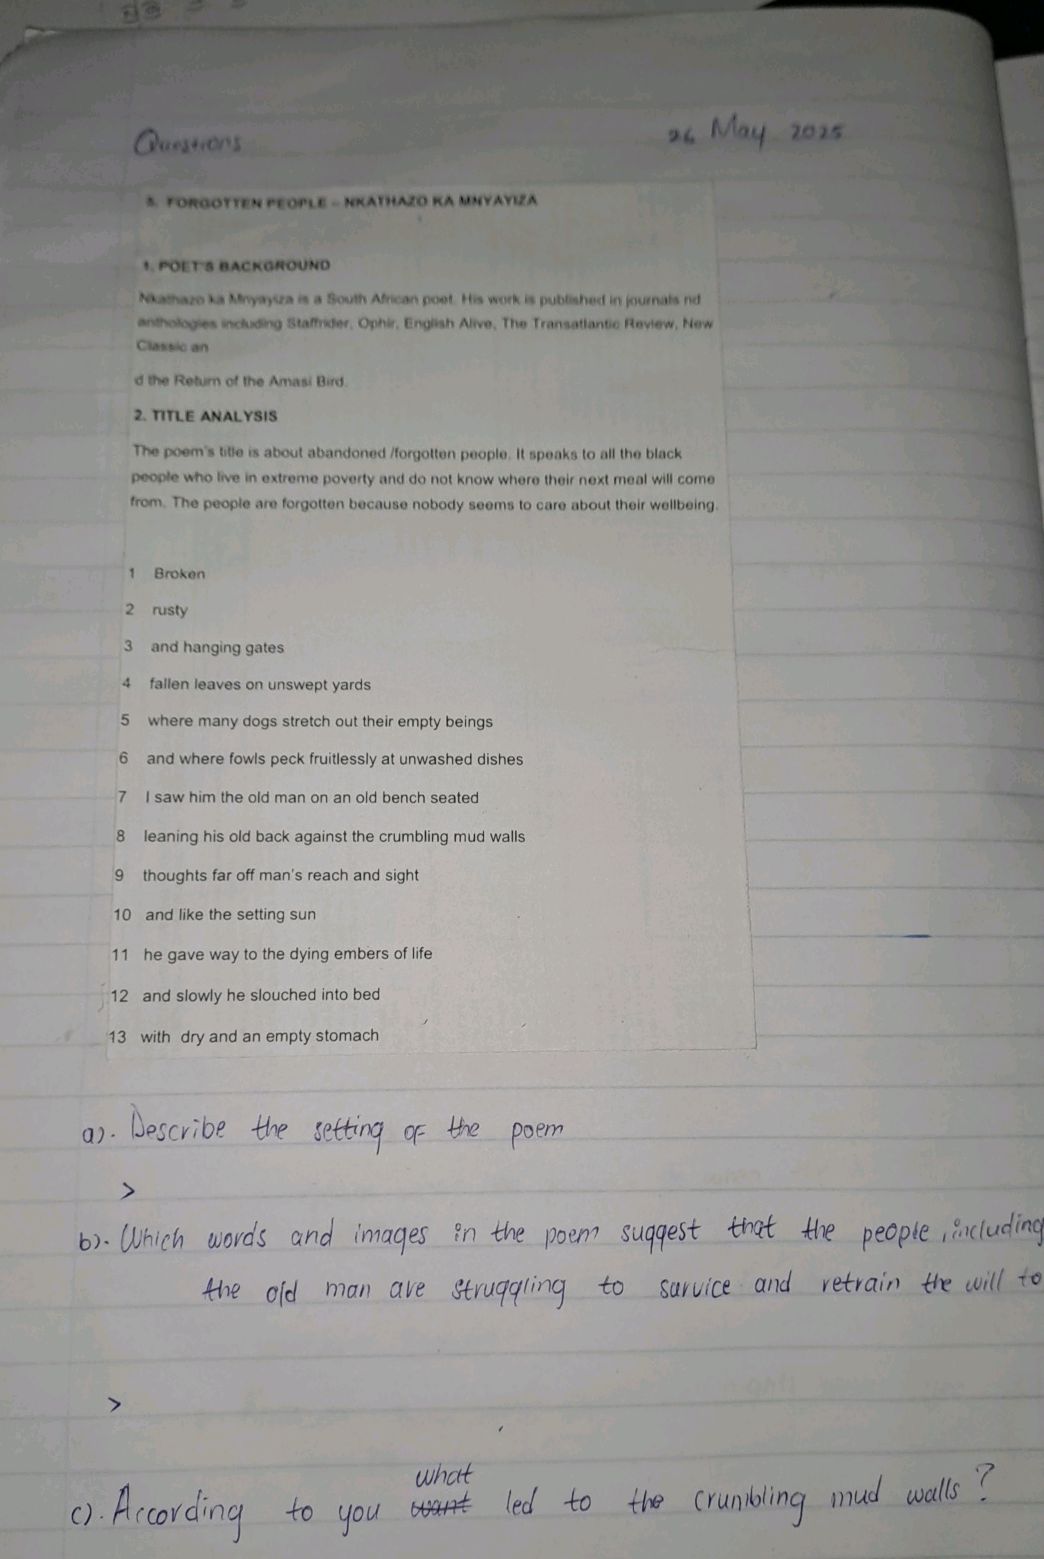 Questions 26 May 2025
5. FORGOTTEN PEOPLE – NKATHAZO KA MNYAYIZA
1. POET'S BACKGROUND
Nkathazo ka Mnyayiza is a South African poet. His work is published in journals nd
anthologies including Staffrider, Ophir, English Alive, The Transatlantic Review, New
Classic an
d the Return of the Amasi Bird.
2. TITLE ANALYSIS
The poem's title is about abandoned /forgotten people. It speaks to all the black
people who live in extreme poverty and do not know where their next meal will come
from. The people are forgotten because nobody seems to care about their wellbeing.
1 Broken
2 rusty
3 and hanging gates
4 fallen leaves on unswept yards
5 where many dogs stretch out their empty beings
6 and where fowls peck fruitlessly at unwashed dishes
7 I saw him the old man on an old bench seated
8 leaning his old back against the crumbling mud walls
9 thoughts far off man's reach and sight
10 and like the setting sun
11 he gave way to the dying embers of life
12 and slowly he slouched into bed
13 with dry and an empty stomach
a). Describe the setting of the poem
>
b). Which words and images in the poem suggest that the people, including
the old man are struggling to survice and retrain the will to
>
what
c). According to you want led to the crumbling mud walls?